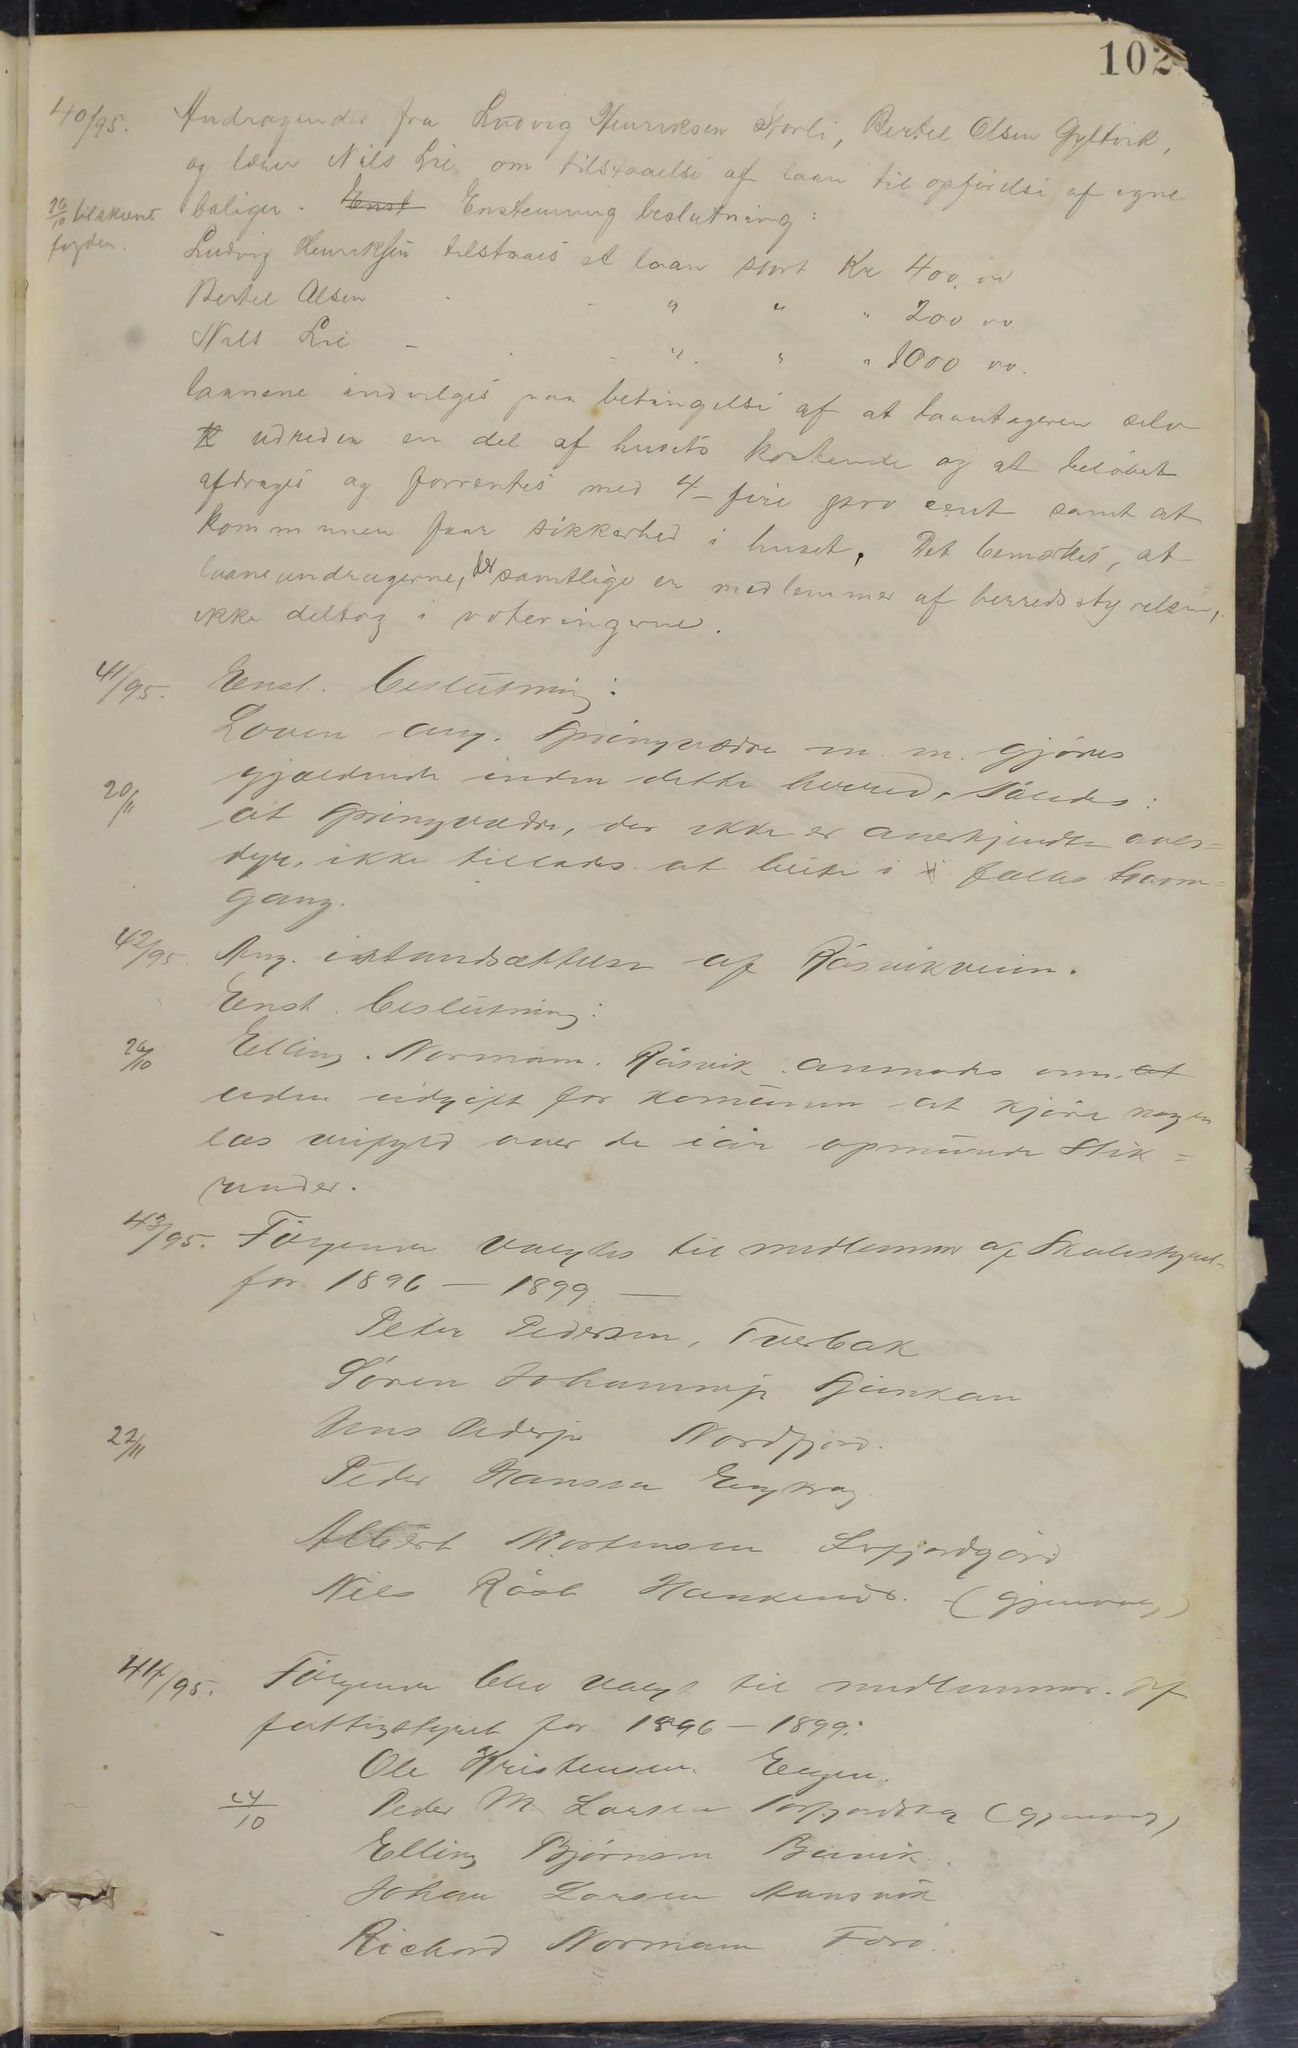 102
40/95. Andragender fra Ludvig Henriksen Storli, Bertel Olsen Gyltvik,
og lærer Nils Lie om tilstaaelse af laan til opførelse af egne
26/10 tilskrevet fogden.
boliger. Enst Enstemmig beslutning:
Ludvig Henriksen tilstaaes et laan stort Kr 400,00
Bertel Olsen - - " " " 200 00.
Nils Lie - - - " " " 1000 00.
laanene indvilges paa betingelse af at laantageren selv
udreder en del af husets kostende og at beløbet
afdrages og forrentes med 4 - fire pro cent samt at
kommunen faar sikkerhed i huset. Det bemærkes, at
laaneandragerne, der samtlige er medlemmer af herredsstyrelsen,
ikke deltog i voteringerne.
41/95. Enst. beslutning:
Loven ang. springvædre m. m. gjøres
20/11
gjældende inden dette herred, således:
at springvædre, der ikke er anerkjendte avls=
dyr, ikke tillades at beite i fælles havn=
gang.
42/95. Ang. istandsættelse af Råsvikveien.
Enst. beslutning:
26/10
Elling Normann Råsvik anmodes om at
uden udgift for komunen at kjøre nogen
læs veifyld over de iår opmurede Stik=
render.
43/95. Følgende valgtes til medlemmer af Skolestyret
for 1896 - 1899. -
Peter Pedersen, Tverbak
Søren Johannesen
22/11
Jens Pedersen Nordfjord.
Peder Hanssen
Albert Mortensen Lerfjordgård
Nils Råst (gjenvalg)
44/95. Følgende blev valgt til medlemmer af
fattigstyret for 1896 - 1899:
Ole Kristensen Engen.
24/10
Peder M. Larsen (gjenvalg)
Elling Bjørnsen
Johan Larsen
Richard Normann Forø.